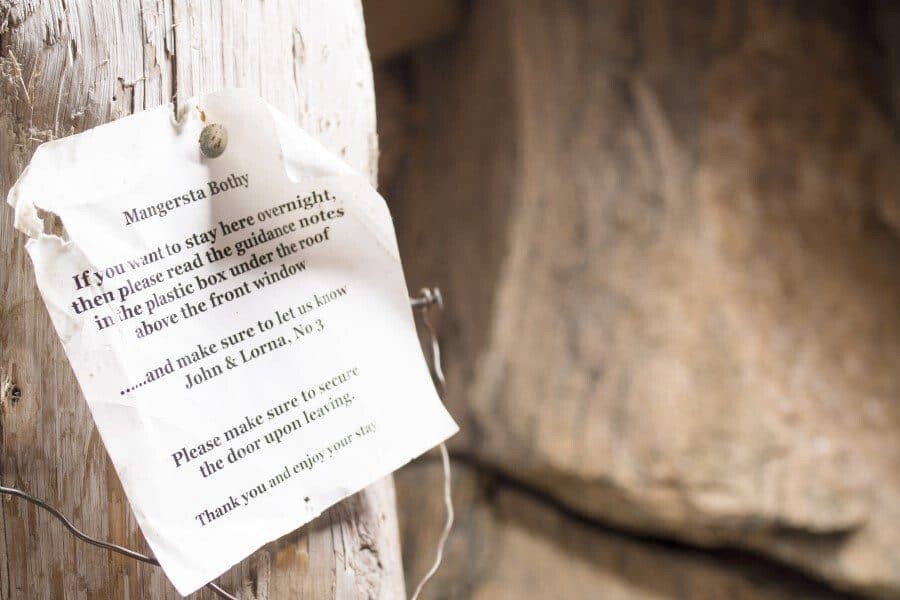 Mangersta Bothy
If you want to stay here overnight,
then please read the guidance notes
in the plastic box under the roof
above the front window
......and make sure to let us know
John & Lorna, No 3
Please make sure to secure
the door upon leaving.
Thank you and enjoy your stay